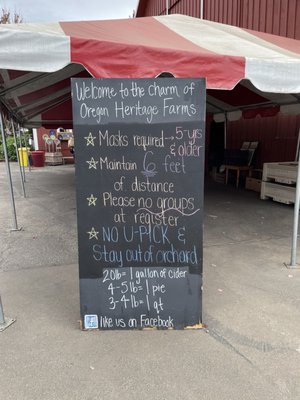 Welcome to the charm of
Oregon Heritage Farms
Masks required - 5-yrs
& older
Maintain 6 feet
of distance
Please no groups
at register
NO U-PICK &
Stay out of orchard
20lb = 1 gallon of cider
4-5lb = 1 pie
3-4lb = 1 qt
like us on Facebook